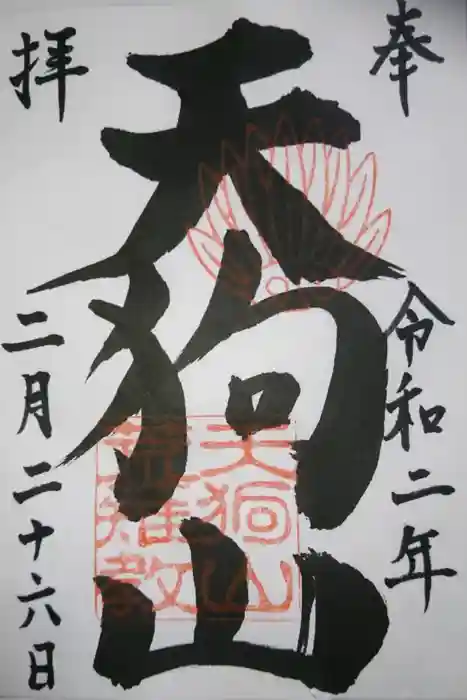 奉拝
天狗山
令和二年
二月二十六日
天狗山